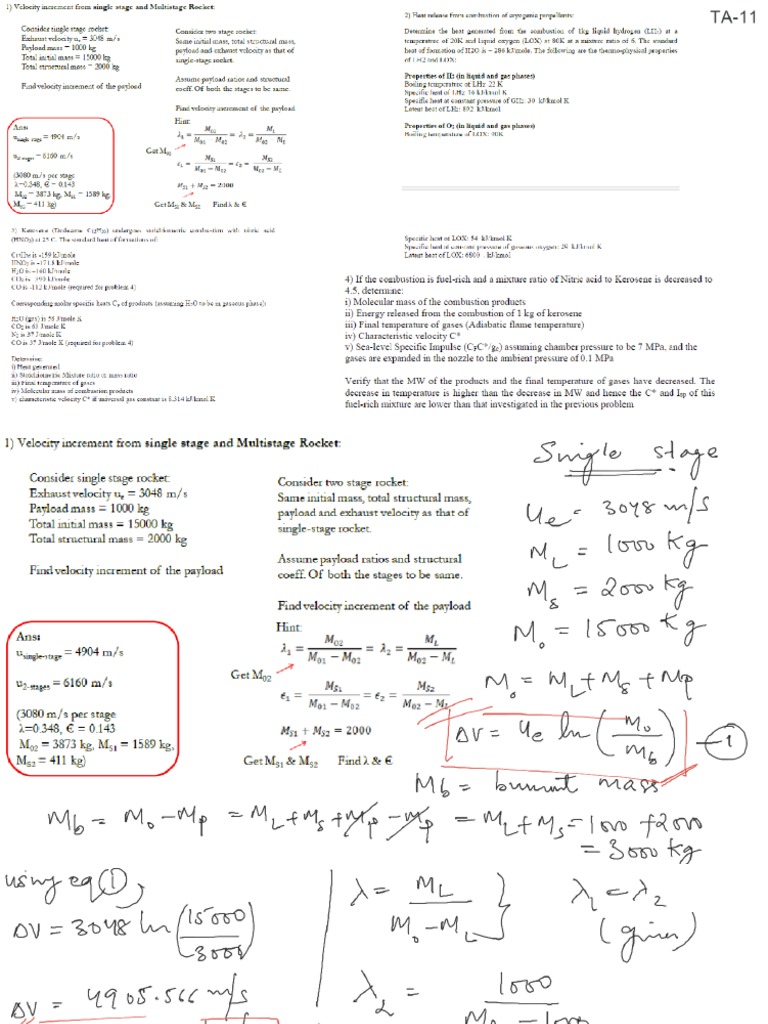 TA-11
1) Velocity increment from single stage and Multistage Rocket:
Consider single stage rocket:
Exhaust velocity uₑ = 3048 m/s
Payload mass = 1000 kg
Total initial mass = 15000 kg
Total structural mass = 2000 kg
Find velocity increment of the payload
Consider two stage rocket:
Same initial mass, total structural mass,
payload and exhaust velocity as that of
single-stage rocket.
Assume payload ratios and structural
coeff. Of both the stages to be same.
Find velocity increment of the payload
Ans:
u single stage = 4904 m/s
u2-stages = 6160 m/s
(3080 m/s per stage
λ=0.348, € = 0.143
M02 = 3873 kg, MS1 = 1589 kg,
MS2 = 411 kg)
Hint:
λ1 = M02 / (M01 − M02) = λ2 = ML / (M02 − ML)
Get M02
ϵ1 = MS1 / (M01 − M02) = ϵ2 = MS2 / (M02 − ML)
MS1 + MS2 = 2000
Get MS1 & MS2 Find λ & €
2) Heat release from combustion of cryogenic propellants:
Determine the heat generated from the combustion of 1kg liquid hydrogen (LH2) at a
temperature of 20K and liquid oxygen (LOX) at 80K at a mixture ratio of 6. The standard
heat of formation of H2O is – 286 kJ/mole. The following are the thermo-physical properties
of LH2 and LOX:
Properties of H2 (in liquid and gas phases)
Boiling temperature of LH2: 22 K
Specific heat of LH2: 10 kJ/kmol K
Specific heat at constant pressure of GH2: 30 kJ/kmol K
Latent heat of LH2: 892 kJ/kmol
Properties of O2 (in liquid and gas phases)
Boiling temperature of LOX: 90K
Specific heat of LOX: 54 kJ/kmol K
Specific heat at constant pressure of gaseous oxygen: 29 kJ/kmol K
Latent heat of LOX: 6800 kJ/kmol
3) Kerosene (Dodecane C12H26) undergoes stoichiometric combustion with nitric acid
(HNO3) at 25 C. The standard heat of formations of:
H2O is –240 kJ/mole
CO2 is –393 kJ/mole
CO is -112 kJ/mole (required for problem 4)
Corresponding molar specific heats Cp of products (assuming H2O to be in gaseous phase):
CO is 37 J/mole K (required for problem 4)
Determine:
i) Heat generated
ii) Stoichiometric Mixture ratio in mass ratio
iii) Final temperature of gases
iv) Molecular mass of combustion products
v) characteristic velocity C* if universal gas constant is 8.314 kJ/kmol K
4) If the combustion is fuel-rich and a mixture ratio of Nitric acid to Kerosene is decreased to
4.5, determine:
i) Molecular mass of the combustion products
ii) Energy released from the combustion of 1 kg of kerosene
iii) Final temperature of gases (Adiabatic flame temperature)
iv) Characteristic velocity C*
v) Sea-level Specific Impulse (CFC*/gc) assuming chamber pressure to be 7 MPa, and the
gases are expanded in the nozzle to the ambient pressure of 0.1 MPa
Verify that the MW of the products and the final temperature of gases have decreased. The
decrease in temperature is higher than the decrease in MW and hence the C* and ISP of this
fuel-rich mixture are lower than that investigated in the previous problem
1) Velocity increment from single stage and Multistage Rocket:
Consider single stage rocket:
Exhaust velocity uₑ = 3048 m/s
Payload mass = 1000 kg
Total initial mass = 15000 kg
Total structural mass = 2000 kg
Find velocity increment of the payload
Consider two stage rocket:
Same initial mass, total structural mass,
payload and exhaust velocity as that of
single-stage rocket.
Assume payload ratios and structural
coeff. Of both the stages to be same.
Find velocity increment of the payload
Ans:
usingle-stage = 4904 m/s
u2-stages = 6160 m/s
(3080 m/s per stage
λ=0.348, € = 0.143
M02 = 3873 kg, MS1 = 1589 kg,
MS2 = 411 kg)
Hint:
λ1 = M02 / (M01 − M02) = λ2 = ML / (M02 − ML)
Get M02
ϵ1 = MS1 / (M01 − M02) = ϵ2 = MS2 / (M02 − ML)
MS1 + MS2 = 2000
Get MS1 & MS2 Find λ & €
Single stage
Ue = 3048 m/s
ML = 1000 Kg
Ms = 2000 Kg
Mo = 15000 Kg
Mo = ML + Ms + Mp
ΔV = Ue ln (Mo / Mb) — 1
Mb = burnout mass
Mb = Mo − Mp = ML + Ms + Mp − Mp = ML + Ms = 1000 + 2000
= 3000 Kg
using eq 1,
ΔV = 3048 ln (15000 / 3000)
ΔV = 4905.566 m/s
λ = ML / (Mo − ML)
λ1 = λ2
(given)
λ2 = 1000 / Mo − 1000